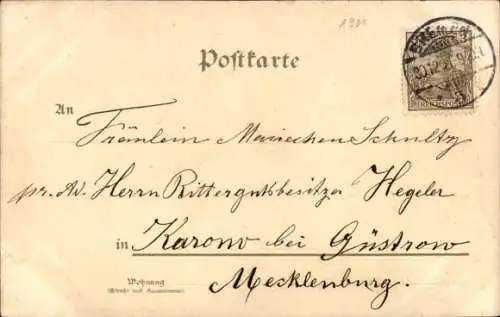 1901
Postkarte
BREMEN
An
Fräulein Mariechen Schultz
pr. Ad. Herrn Rittergutsbesitzer Hegeler
in Karow bei Güstrow
Mecklenburg.
Wohnung
(Straße und Hausnummer)